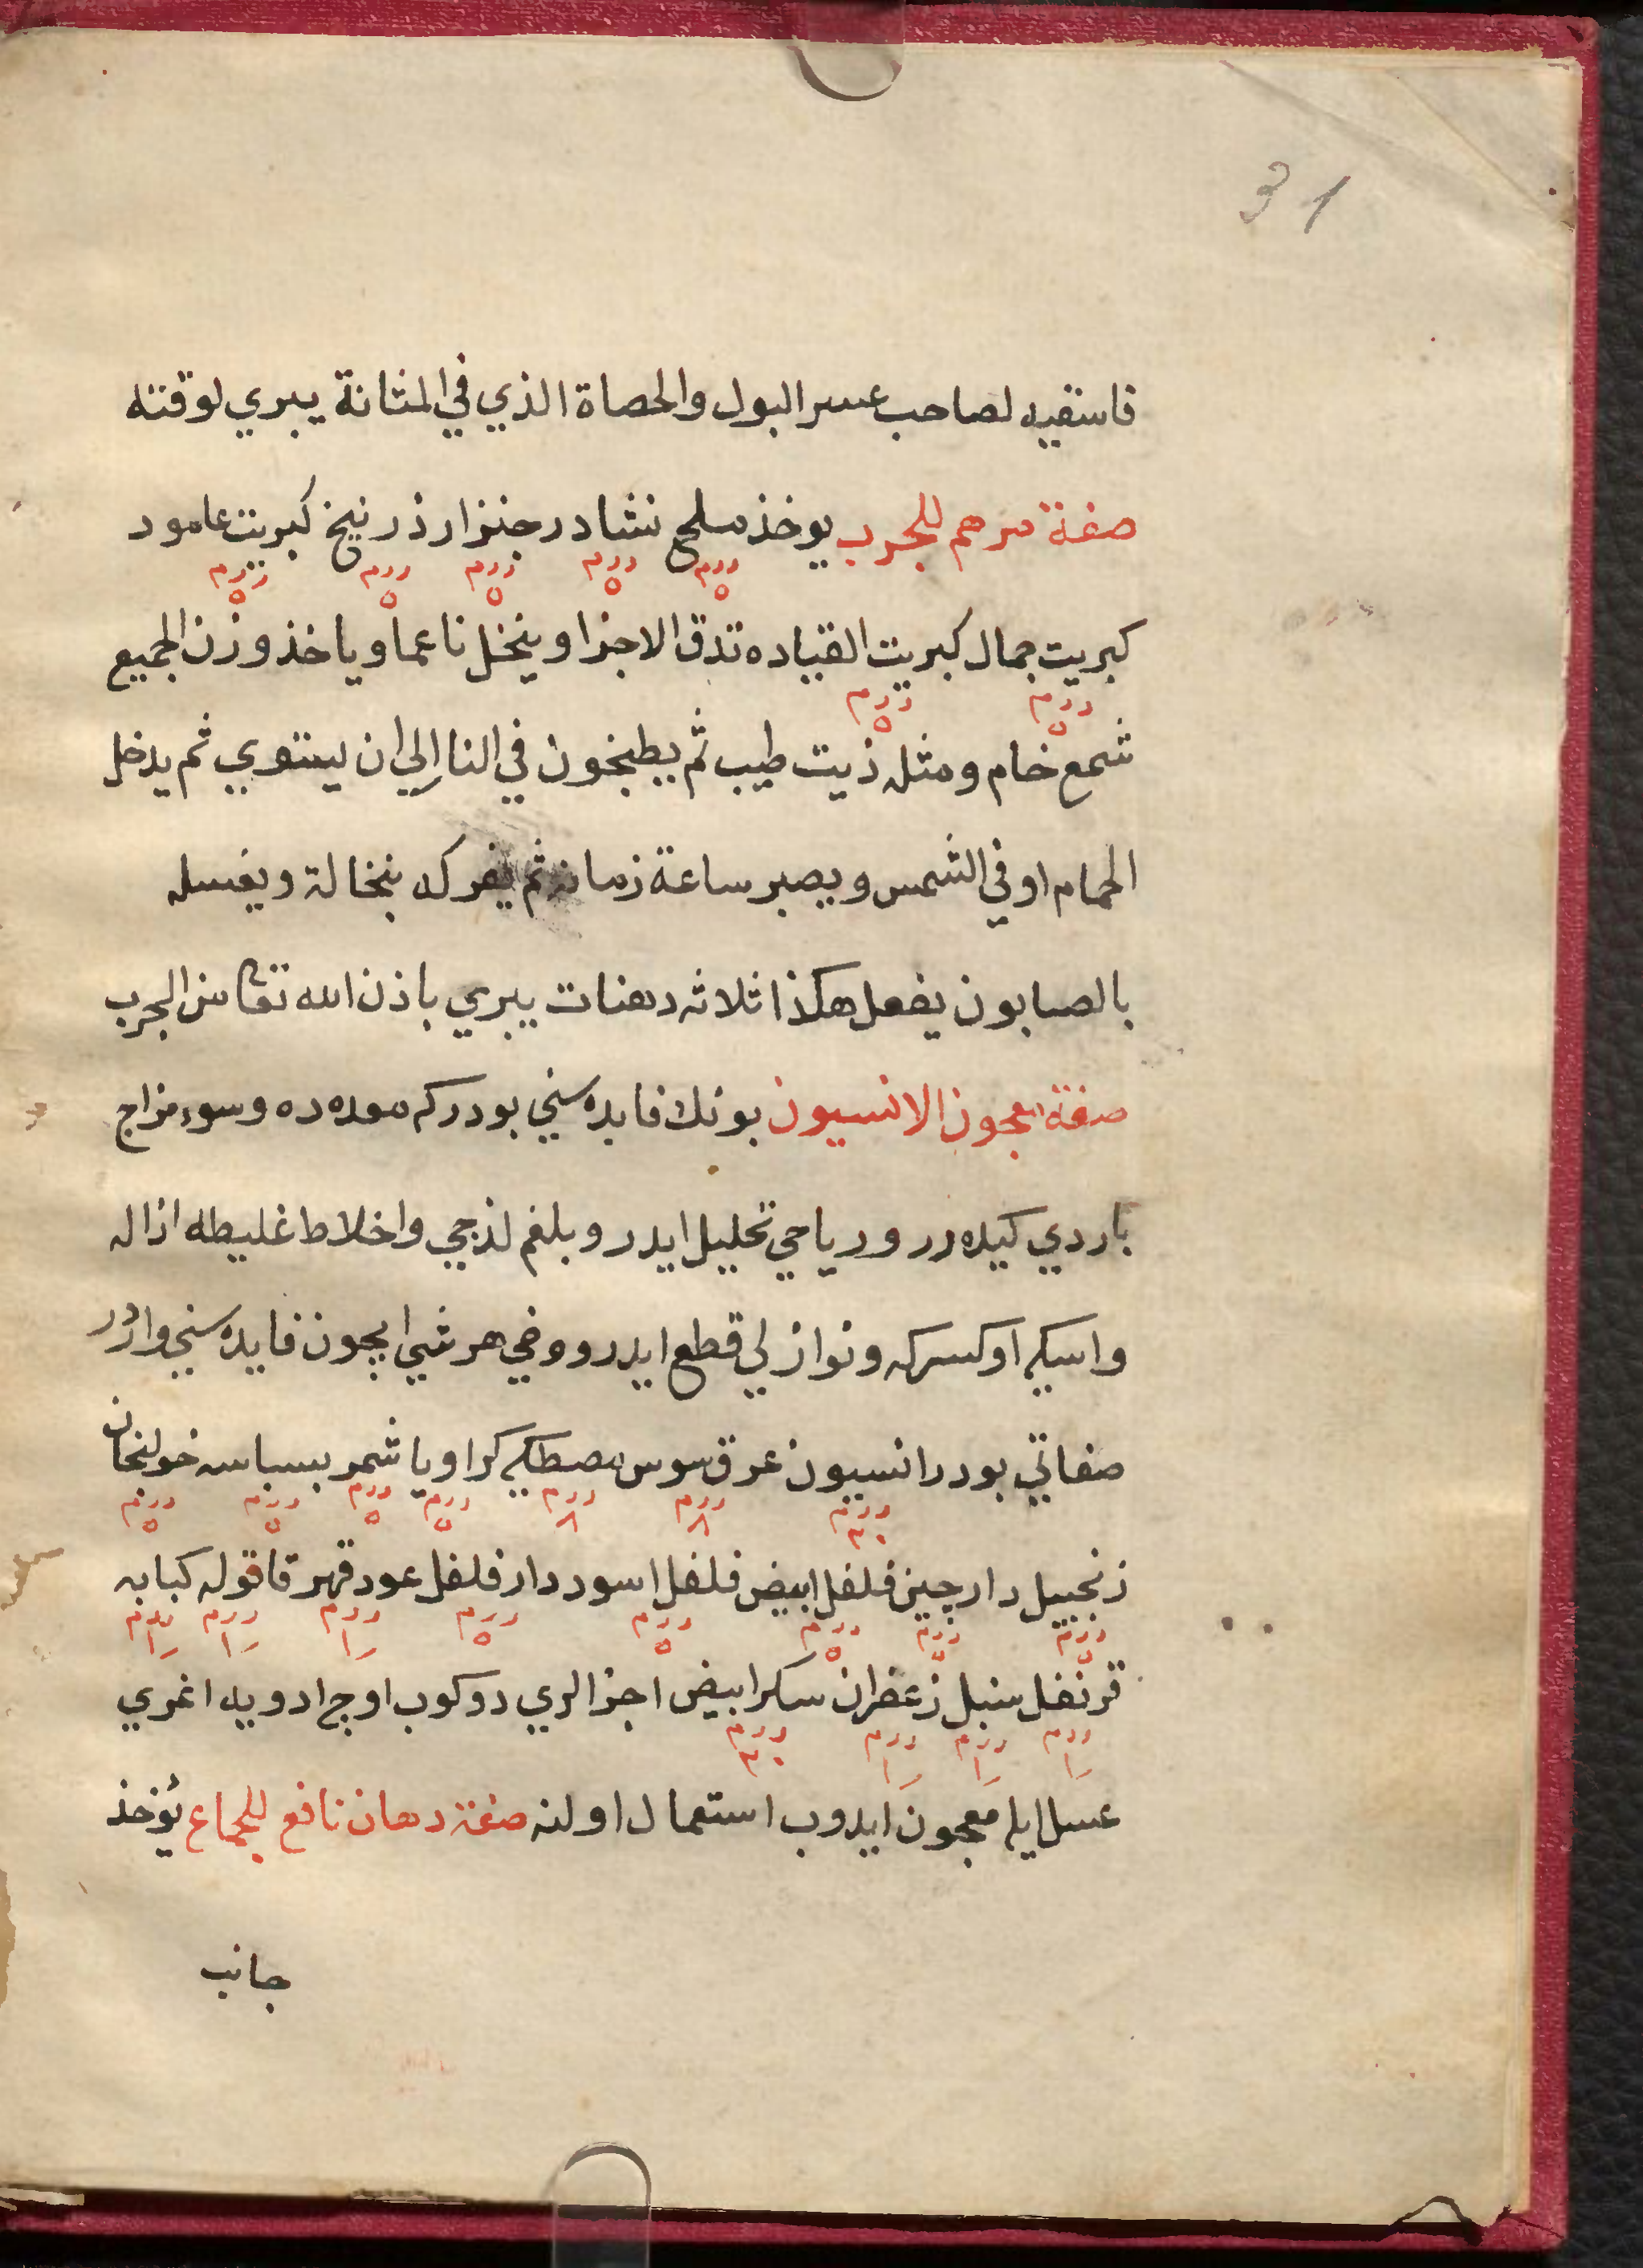 31
فاسقيه لصاحب عسر البول والحصاة الذي في المثانة يبري لوقته
صفة مرهم للجرب يوخذ ملح نشادر جنزار زرنيخ كبريت عامود
درم ٥ درم ٥ درم ٥ درم ٥ درم ٥
كبريت جمال كبريت القياده تدق الاجزا وينخل ناعما وياخذ وزن الجميع
درم ٥ درم ٥
شمع خام ومثله زيت طيب ثم يطبخون في النار الي ان يستوي ثم يدخل
الحمام او في الشمس ويصبر ساعة زمانيه ثم يفركه بنخالة ويغسله
بالصابون يفعل هكذا ثلاثه دهنات يبري باذن الله تعا من الجرب
صفة معجون الانسيون بونك فايده سني بودركه معده ده وسوء مزاج
باردي كيده رر ورياحي تحليل ايدر وبلغم لزجي واخلاط غليطه ازاله
واسكي اوكسركه ونوازلي قطع ايدر ووخي هر شي ايچون فايده سني واردر
صفاتي بودر انسيون عرق سوس مصطكي كراويا شمر بسباسه خولنجان
درم ٣٠ درم ٨ درم ٨ درم ٥ درم ٥ درم ٥ درم ٥
زنجبيل دارچين فلفل ابيض فلفل اسود دار فلفل عود قهر قاقوله كبابه
درم ٥ درم ٥ درم ٥ درم ٥ درم ٥ درم درم درم
قرنفل سنبل زعفران سكر ابيض اجزالري دوكوب اوچ ادويه اغري
درم درم درم درم ٣٠
عسل ايله معجون ايدوب استعمال اولنه صفة دهان نافع للجماع يؤخذ
جانب